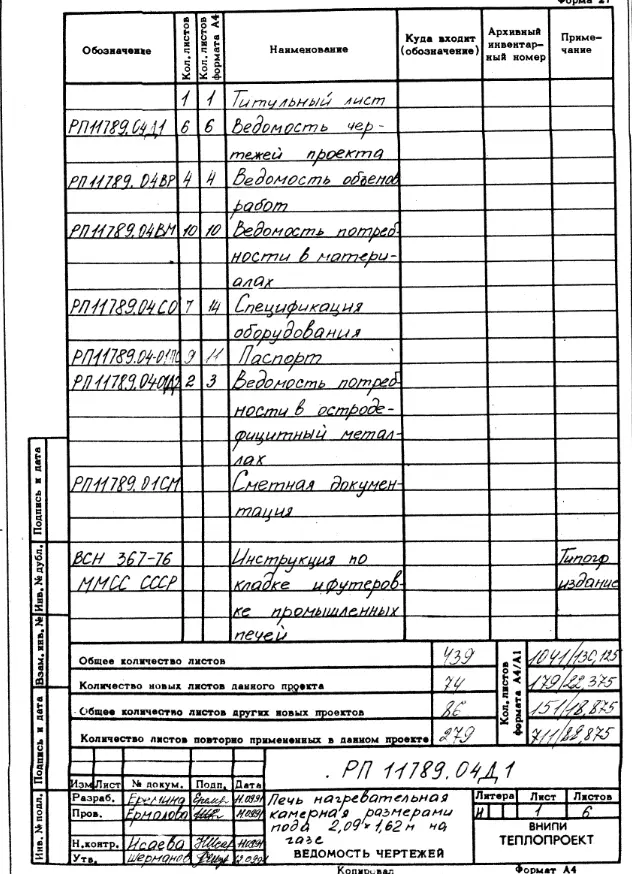 Форма 27
Обозначение Кол. листов Кол. листов формата А4 Наименование Куда входит (обозначение) Архивный инвентар-ный номер Приме-чание
1 1 Титульный лист
РП11789.04Д1 6 6 Ведомость чер-
тежей проекта
РП11789.04ВР 4 4 Ведомость объемов
работ
РП11789.04ВМ 10 10 Ведомость потреб-
ности в матери-
алах
РП11789.04СО 7 14 Спецификация
оборудования
РП11789.04-01ПС 9 11 Паспорт
РП11789.04-01Д2 2 3 Ведомость потреб-
ности в остроде-
фицитный метал-
лах
РП11789.01СМ Сметная докумен-
тация
ВСН 367-76 Инструкция по Типогр
ММСС СССР кладке и футеров- издание
ке промышленных
печей
Общее количество листов 439 1041/130,125
Количество новых листов данного проекта 74 179/22,375
Общее количество листов других новых проектов 86
Количество листов повторно примененных в данном проекте 279
Кол. листов формата А4/А1
РП 11789.04Д1
Изм Лист № докум. Подп. Дата
Разраб. Еремина
Пров. Ермолова
Н.контр. Исаева
Утв. Шерманов
Печь нагревательная
камерная размерами
пода 2,09×1,62м на
газе
ВЕДОМОСТЬ ЧЕРТЕЖЕЙ
Литера Лист Листов
И 1 6
ВНИПИ
ТЕПЛОПРОЕКТ
Копировал Формат А4
Подпись и дата
Инв. № дубл.
Взам. инв. №
Подпись и дата
Инв. № подл.